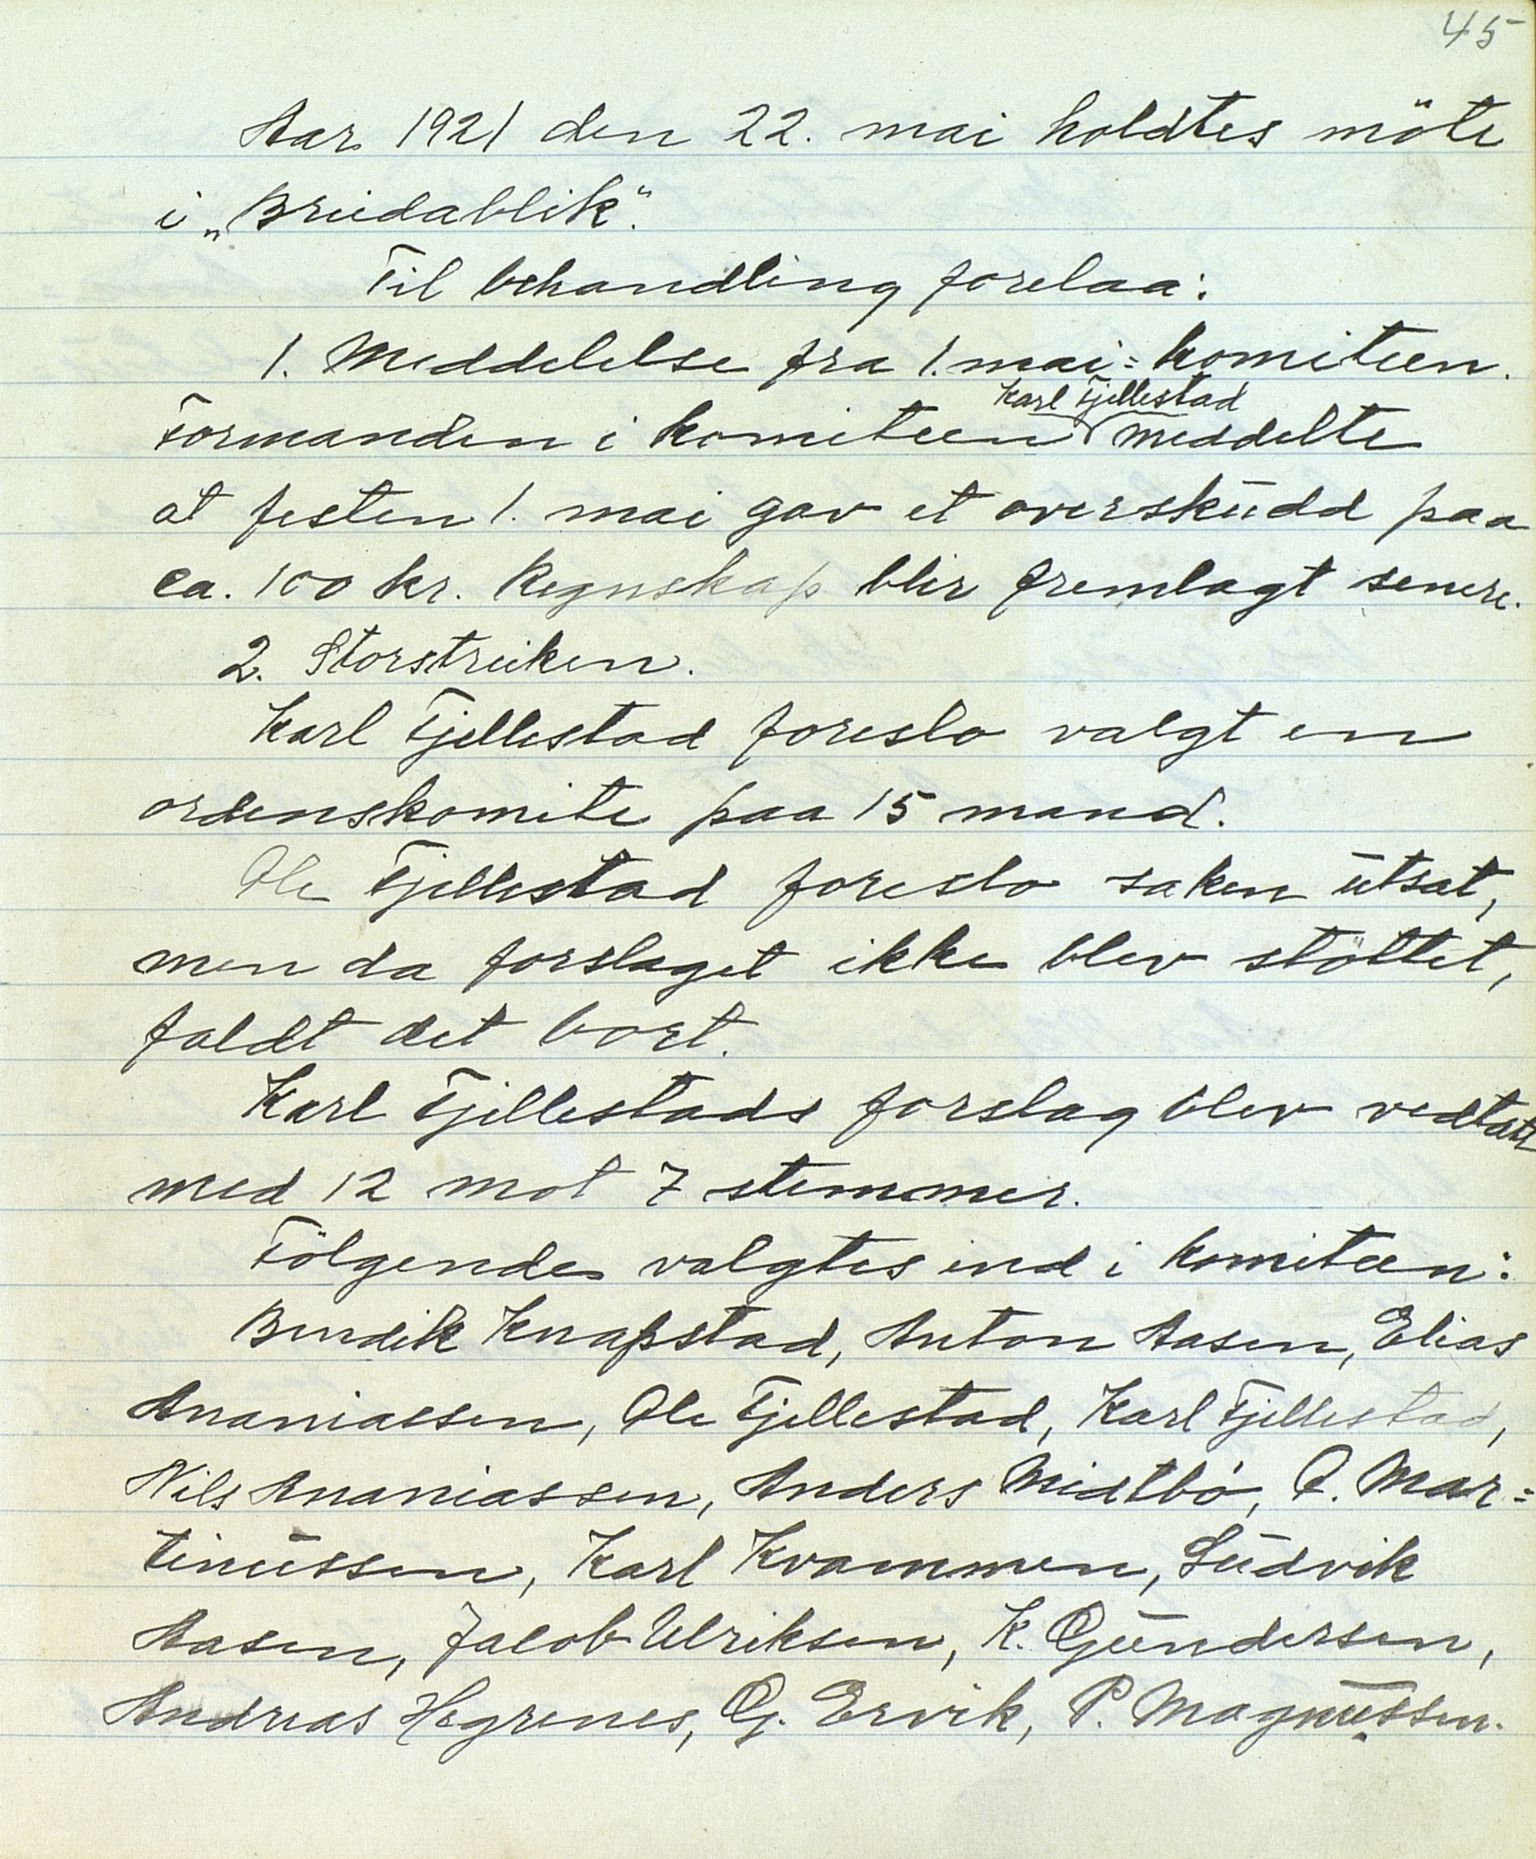 45
Aar 1921 den 22. mai holdtes möte
i „Breidablik“.
Til behandling forelaa:
1. Meddelelse fra 1. mai=komiteen.
Karl Fjellestad
Formanden i komiteen meddelte
at festen 1. mai gav et overskudd paa
ca. 100 kr. Regnskap blir fremlagt senere.
2. Storstreiken.
Karl Fjellestad foreslo valgt en
ordenskomite paa 15 mand.
Ole Fjellestad foreslo saken utsat,
men da forslaget ikke blev stöttet,
faldt det bort.
Karl Fjellestads forslag blev vedtatt
med 12 mot 7 stemmer.
Fölgende valgtes ind i komiteen:
Bendik Knapstad, Anton Aasen, Elias
Ananiassen, Ole Fjellestad, Karl Fjellestad,
Nils Ananiassen, Anders Midtbö, P. Mar=
tinussen, Karl Kvammen, Ludvik
Aasen, Jakob Ulriksen, K. Gundersen,
Andreas Hegrenes, G. Ervik, P. Magnussen.